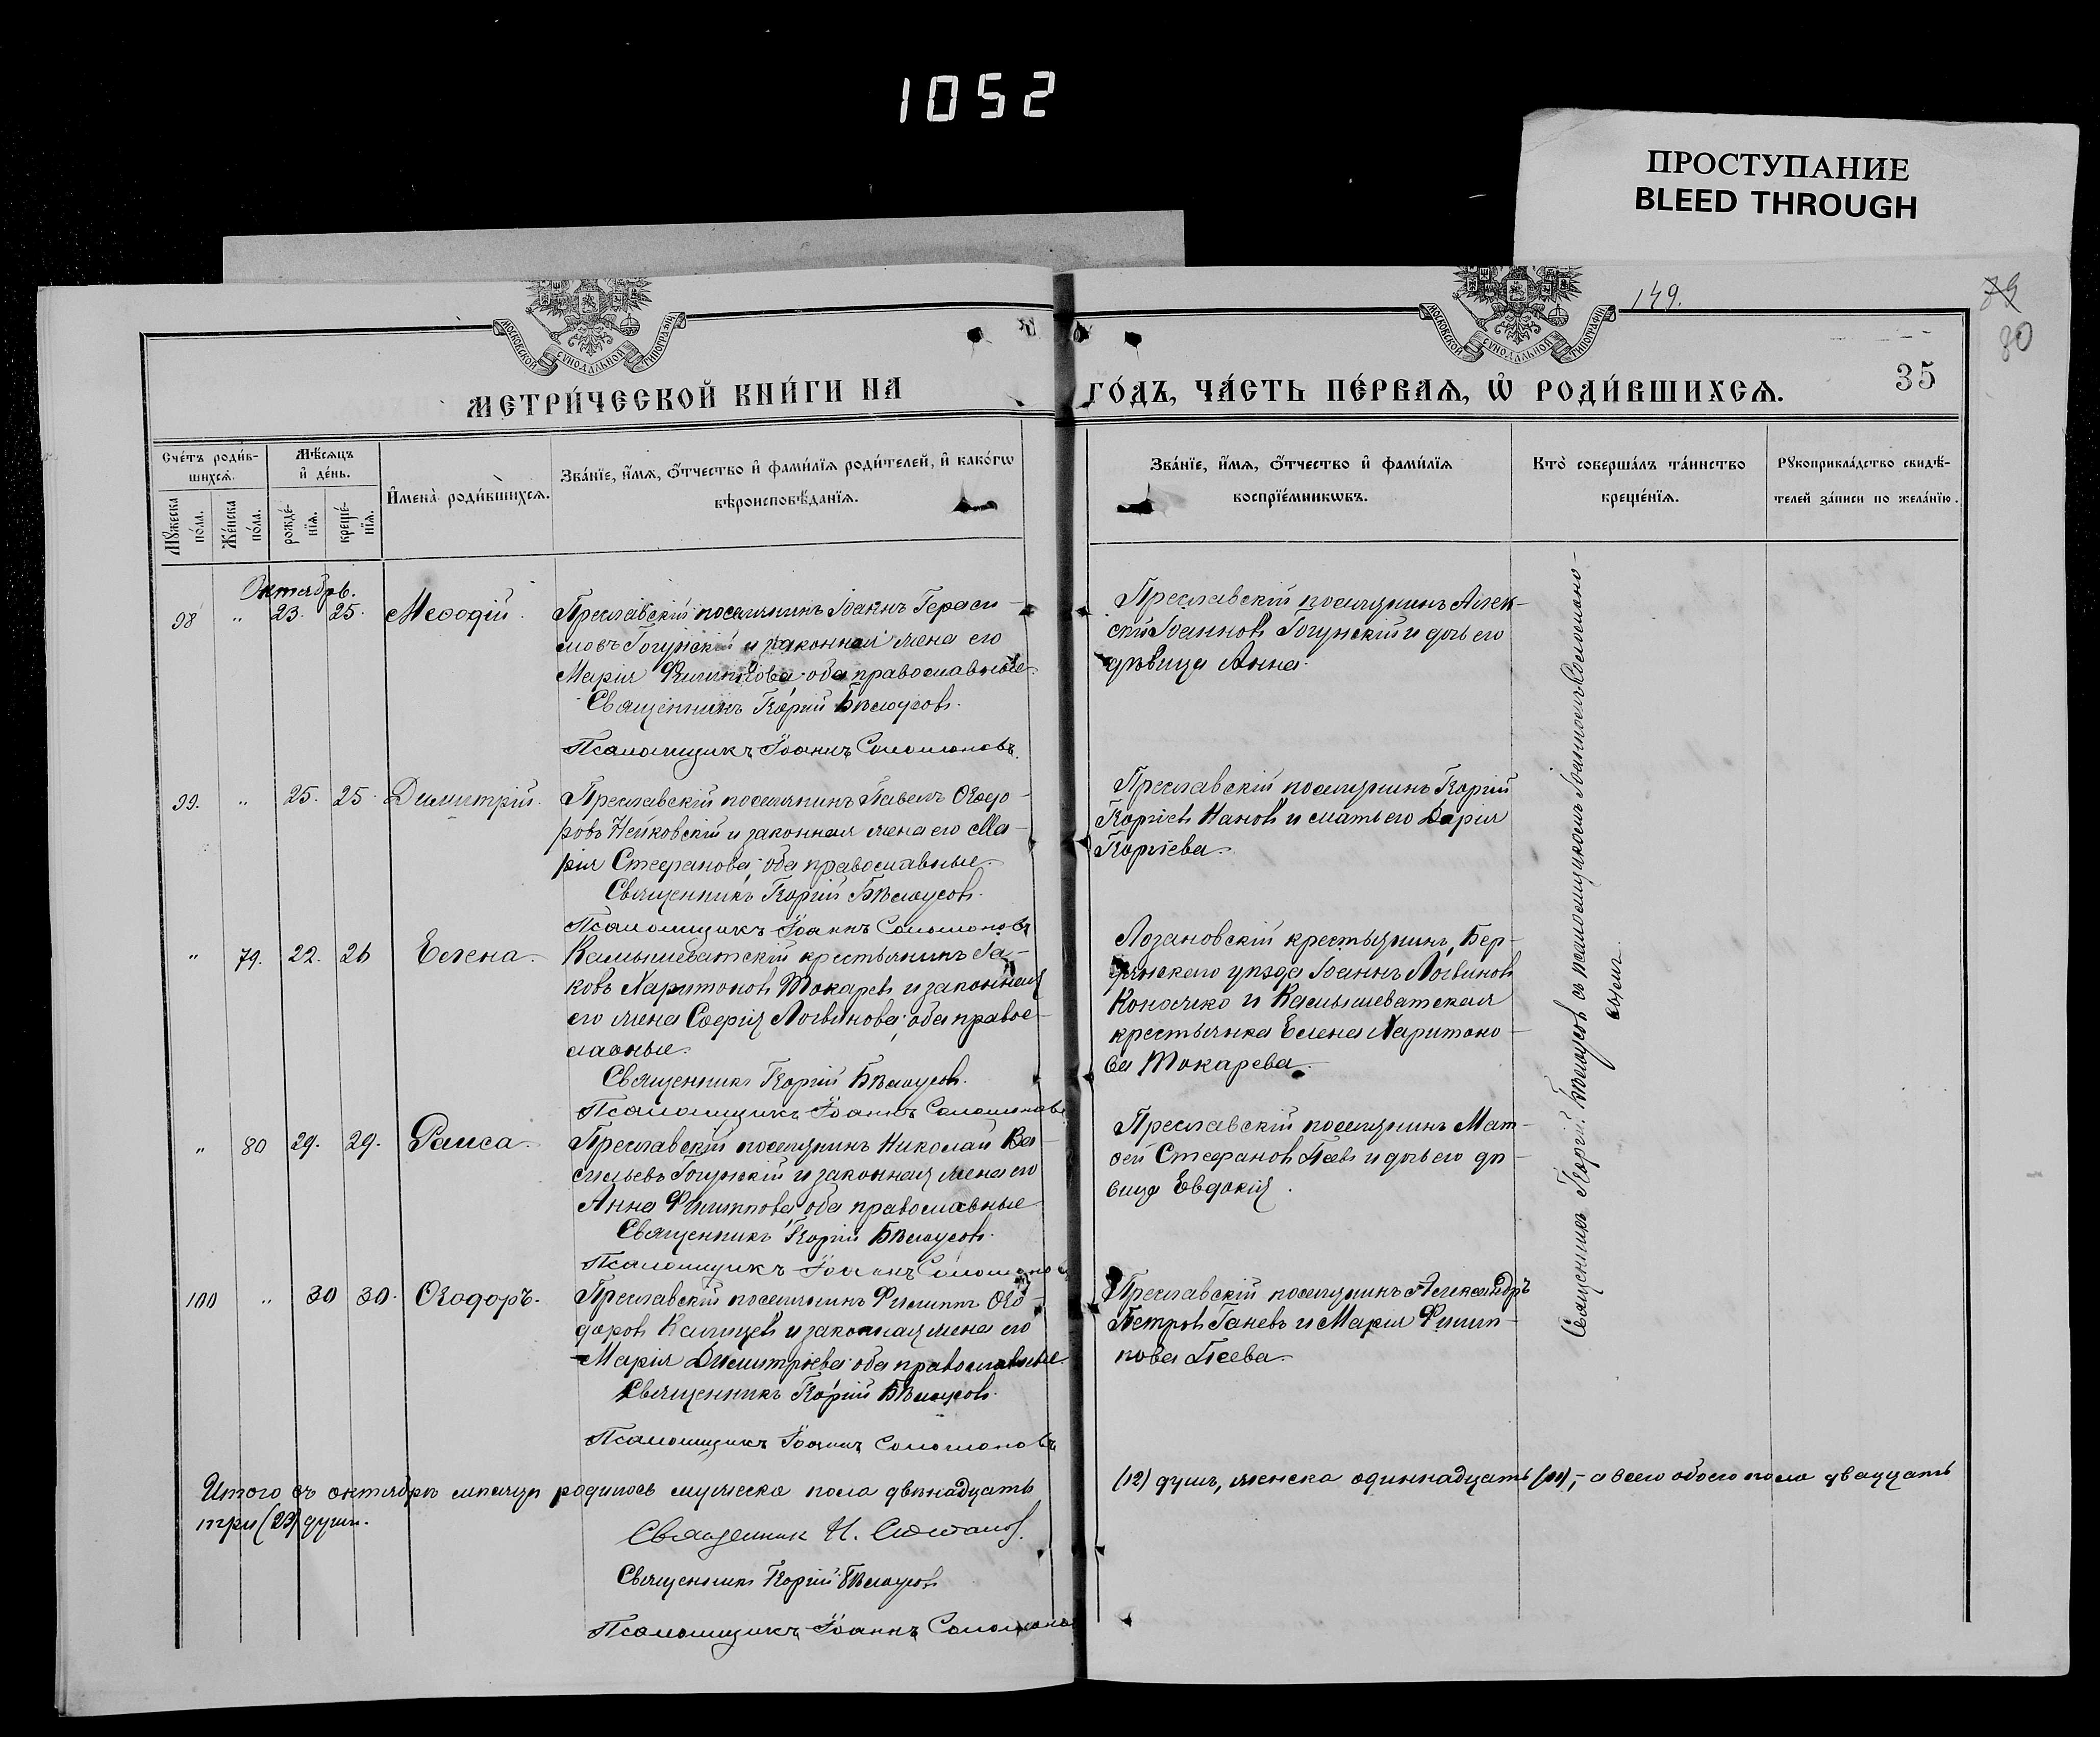 1052
ПРОСТУПАНИЕ
BLEED THROUGH
149.
79
80
35
МОСКОВСКОЙ СѴНОДАЛЬНОЙ ТИПОГРАФІИ
МОСКОВСКОЙ СѴНОДАЛЬНОЙ ТИПОГРАФІИ
МЕТРИ́ЧЕСКОЙ КНИ́ГИ НА
ГО́ДЪ, ЧА́СТЬ ПЕ́РВАѦ, Ѡ҆ РОДИ́ВШИХСѦ.
Сче́тъ роди́в-
шихсѧ.
Мꙋ́жеска по́ла.
Же́нска по́ла.
Мѣ́сѧцъ
и҆ де́нь.
рожде́-нїѧ.
креще́-нїѧ.
И҆мена̀ роди́вшихсѧ.
Зва́нїе, и҆́мѧ, ѻ҆́тчество и҆ фами́лїѧ роди́телей, и҆ како́гѡ
вѣроисповѣ́данїѧ.
Зва́нїе, и҆́мѧ, ѻ҆́тчество и҆ фами́лїѧ
воспрїе́мникѡвъ.
Кто̀ соверша́лъ та́инство
креще́нїѧ.
Рꙋкоприкла́дство свидѣ́-
телей за́писи по жела́нїю.
Октябрь.
98 " 23. 25. Меѳодій.
Преславскій поселянинъ Іоаннъ Гераси-
мовъ Гогунскій и законная жена его
Марія Филиппова, оба православные.
Священникъ Георгій Бѣлоусовъ.
Псаломщикъ Іоаннъ Соломоновъ.
Преславскій поселянинъ Алек-
сѣй Іоанновъ Гогунскій и дочь его
дѣвица Анна.
99. " 25. 25. Димитрій.
Преславскій поселянинъ Павелъ Ѳеодо-
ровъ Нейковскій и законная жена его Ма-
рія Стефанова, оба православные.
Священникъ Георгій Бѣлоусовъ.
Псаломщикъ Іоаннъ Соломоновъ
Преславскій поселянинъ Георгій
Георгіевъ Нановъ и мать его Дарія
Георгіева.
" 79. 22. 26 Елена.
Камышеватскій крестьянинъ Іа-
ковъ Харитоновъ Токаревъ и законная
его жена Софія Логвинова, оба право-
славные.
Священникъ Георгій Бѣлоусовъ.
Псаломщикъ Іоаннъ Соломоновъ
Лозановскій крестьянинъ, Бер-
дянскаго уѣзда Іоаннъ Логвиновъ
Коночко и Камышеватская
крестьянка Елена Харитоно-
ва Токарева.
" 80 29. 29. Раиса.
Преславскій поселянинъ Николай Ва-
сильевъ Гогунскій и законная жена его
Анна Филиппова, оба православные
Священникъ Георгій Бѣлоусовъ.
Псаломщикъ Іоаннъ Соломонов
Преславскій поселянинъ Мат-
ѳей Стефановъ Пеевъ и дочь его дѣ-
вица Евдокія.
100 " 30 30. Ѳеодоръ.
Преславскій поселянинъ Филиппъ Ѳео-
доровъ Калицевъ и законная жена его
Марія Димитріева, оба православные
Священникъ Георгій Бѣлоусовъ.
Псаломщикъ Іоаннъ Соломоновъ
Преславскій поселянинъ Александръ
Петровъ Ганевъ и Марія Филип-
пова Пеева.
Священникъ Георгій Бѣлоусовъ съ псаломщикомъ Іоанномъ Соломоно-
вымъ.
Итого въ октябрѣ мѣсяцѣ родилось мужеска пола двѣнадцать
(12) душъ, женска одиннадцать (11), - а всего обоего пола двадцать
три (23) душъ.
Священник И.
Священникъ Георгій Бѣлоусовъ
Псаломщикъ Іоаннъ Соломонов